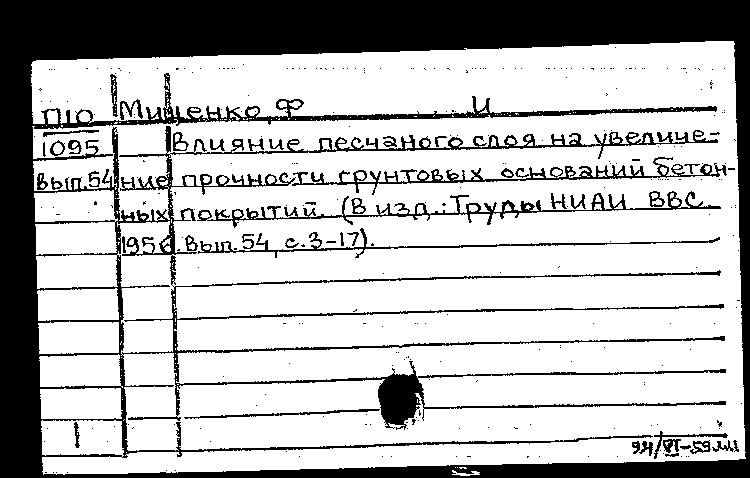 П10 Мищенко, Ф И
1095 Влияние песчаного слоя на увеличе-
вып.54 ние прочности грунтовых оснований бетон-
ных покрытий. (В изд.: Труды НИАИ ВВС
1956. Вып. 54, с. 3-17).
1